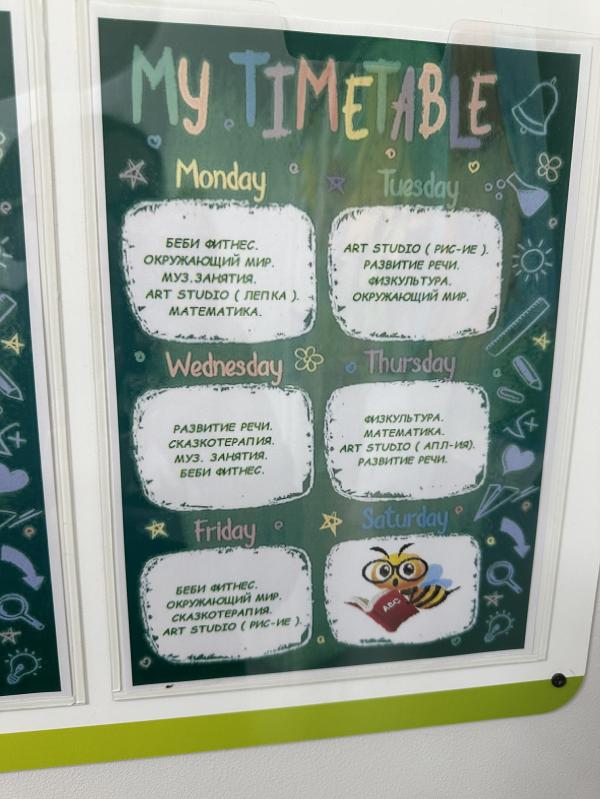 MY TIMETABLE
Monday
БЕБИ ФИТНЕС.
ОКРУЖАЮЩИЙ МИР.
МУЗ.ЗАНЯТИЯ.
ART STUDIO ( ЛЕПКА ).
МАТЕМАТИКА.
Tuesday
ART STUDIO ( РИС-ИЕ ).
РАЗВИТИЕ РЕЧИ.
ФИЗКУЛЬТУРА.
ОКРУЖАЮЩИЙ МИР.
Wednesday
РАЗВИТИЕ РЕЧИ.
СКАЗКОТЕРАПИЯ.
МУЗ. ЗАНЯТИЯ.
БЕБИ ФИТНЕС.
Thursday
ФИЗКУЛЬТУРА.
МАТЕМАТИКА.
ART STUDIO ( АПЛ-ИЯ).
РАЗВИТИЕ РЕЧИ.
Friday
БЕБИ ФИТНЕС.
ОКРУЖАЮЩИЙ МИР.
СКАЗКОТЕРАПИЯ.
ART STUDIO ( РИС-ИЕ ).
Saturday
ABC